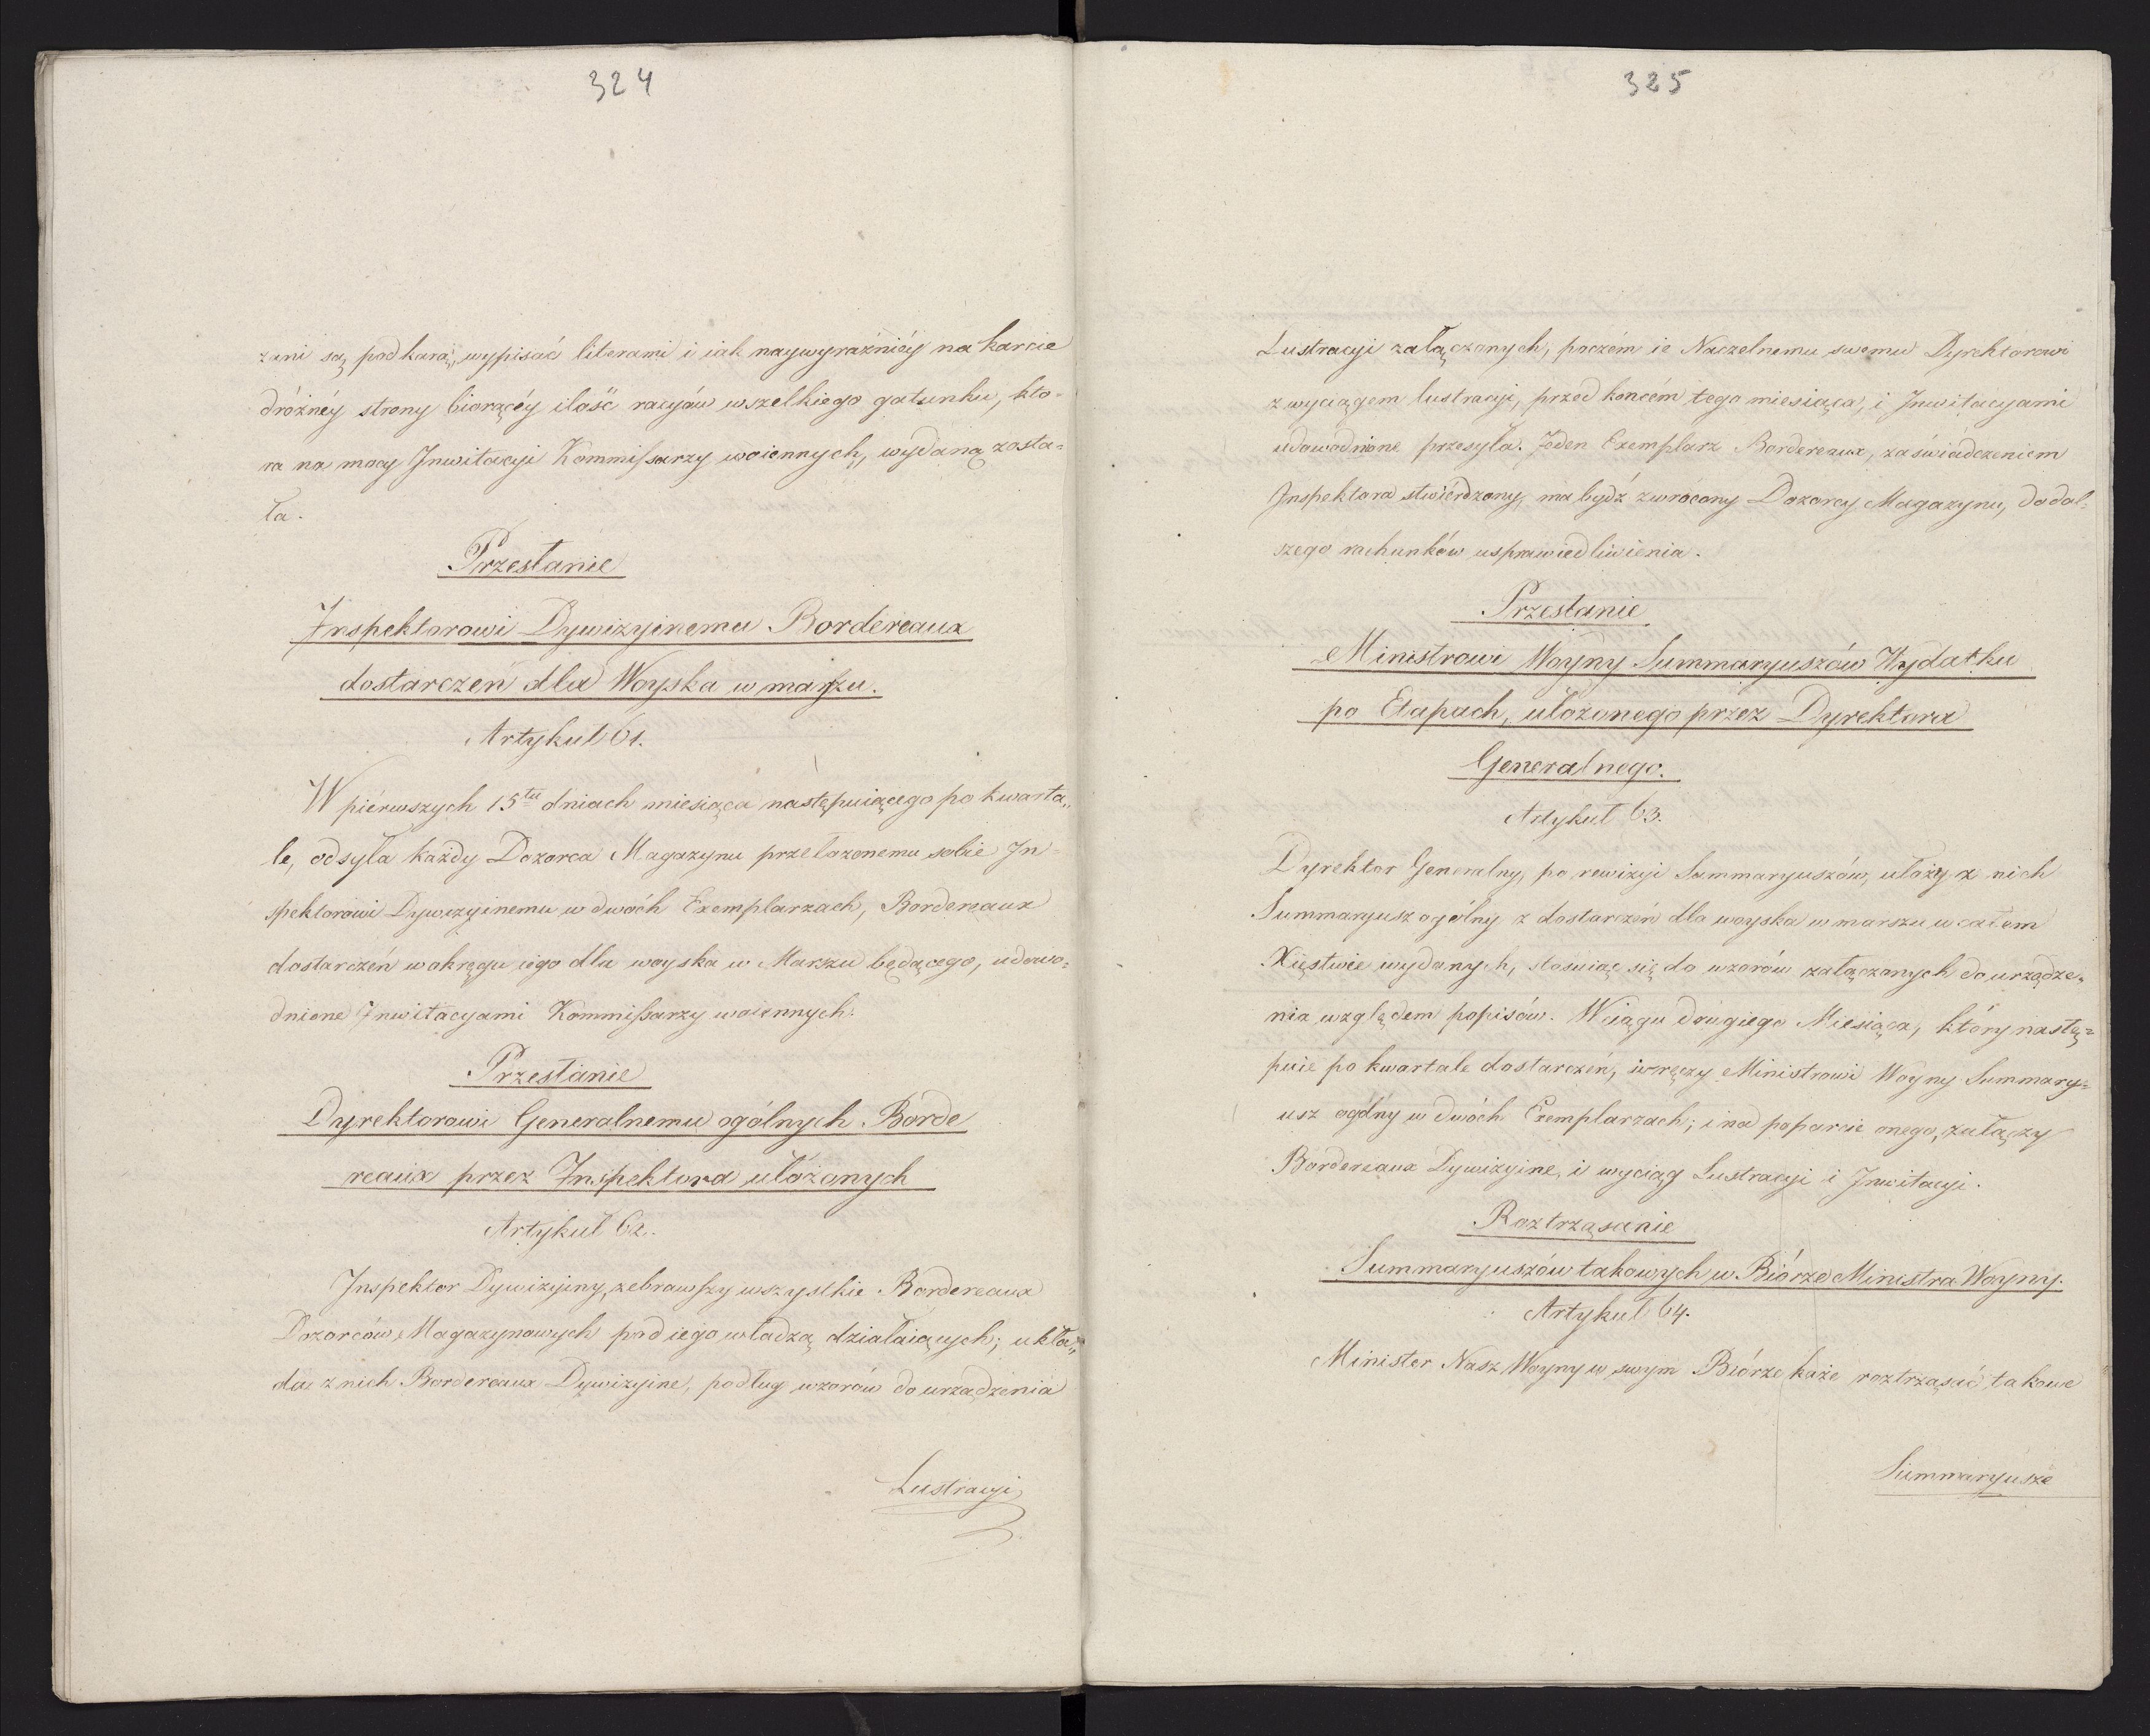 324
zani są pod karą, wypisać literami i iak naywyraźniéy na karcie
dróżnéy strony biorącéy ilość racyów wszelkiego gatunku, któ-
ra na mocy Inwitacyi Kommissarzy woiennych, wydaną zosta=
ła.
Przesłanie
Inspektorowi Dywizyinemu Bordereaux
dostarczeń dla Woyska w marszu.
Artykuł 61.
W piérwszych 15tu dniach miesiąca następuiącego po kwarta„
le, odsyła każdy Dozorca Magazynu przełożonemu sobie In=
spektorowi Dywizyinemu w dwóch Exemplarzach, Bordereaux
dostarczeń w okręgu iego dla woyska w Marszu będącego, udowo=
dnione Inwitacyami Kommissarzy woiennych.
Przesłanie
Dyrektorowi Generalnemu ogólnych Borde
reaux przez Inspektora ułożonych
Artykuł 62.
Inspektor Dywizyiny, zebrawszy wszystkie Bordereaux
Dozorców Magazynowych pod iego władzą działaiących; ukła„
da z nich Bordereaux Dywizyine, podług wzorów do urządzenia
Lustracyi
325
Lustracyi załączonych, poczém ie Naczelnemu swemu Dyrektorowi
z wyciągem lustracyi, przed końcém tego miesiąca, i Inwitacyami
udowodnione przesyła. Jeden Exemplarz Bordereaux, zaświadczeniem
Inspektora stwiérdzony, ma bydź zwrócony Dozorcy Magazynu, do dal=
szego rachunków usprawiedliwienia.
Przesłanie
Ministrowi Woyny Summaryuszów Wydatku
po Etapach, ułożonego przez Dyrektora
Generalnego.
Artykuł 63.
Dyrektor Generalny, po rewizyi Summaryuszów, ułoży z nich
Summaryusz ogólny z dostarczeń dla woyska w marszu w całem
Xięstwie wydanych, stosuiąc się do wzorów załączonych do urządze=
nia względem popisów. W ciągu drugiego Miesiąca, który nastę=
puie po kwartale dostarczeń, wręczy Ministrowi Woyny Summary=
usz ogólny w dwóch Exemplarzach; i na poparcie onego, załączy
Bordereaux Dywizyine, i wyciąg Lustracyi i Inwitacyi.
Roztrząsanie
Summaryuszów takowych w Biórze Ministra Woyny.
Artykuł 64.
Minister Nasz Woyny w swym Biórze każe roztrząsać takowe
Summaryusze